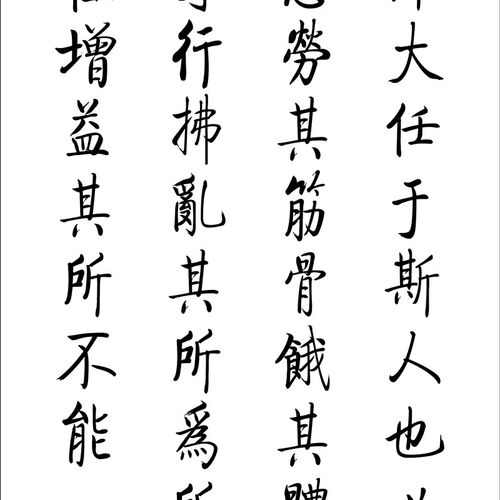 大任于斯人也
勞其筋骨餓其體
行拂亂其所爲所
增益其所不能